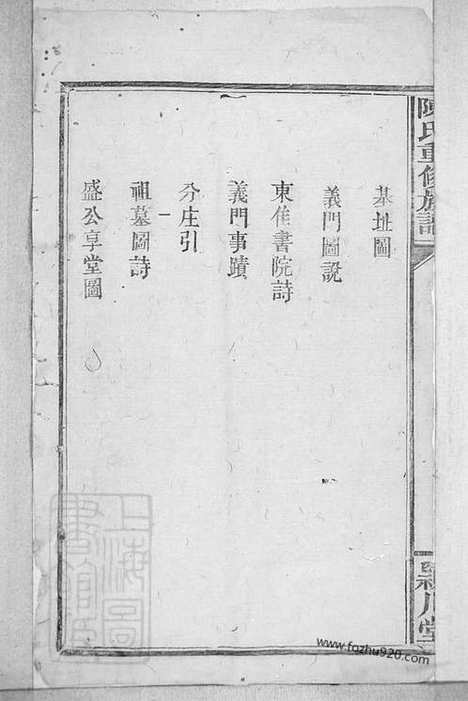 陳氏重修族譜
潁川堂
基址圖
義門圖說
東佳書院詩
義門事蹟
分庄引
祖墓圖詩
盛公享堂圖
上海圖書館藏
www.fozhu920.com